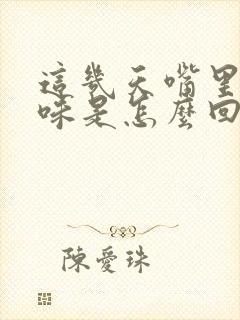 這幾天嘴里
味是怎麼回
陳愛珠